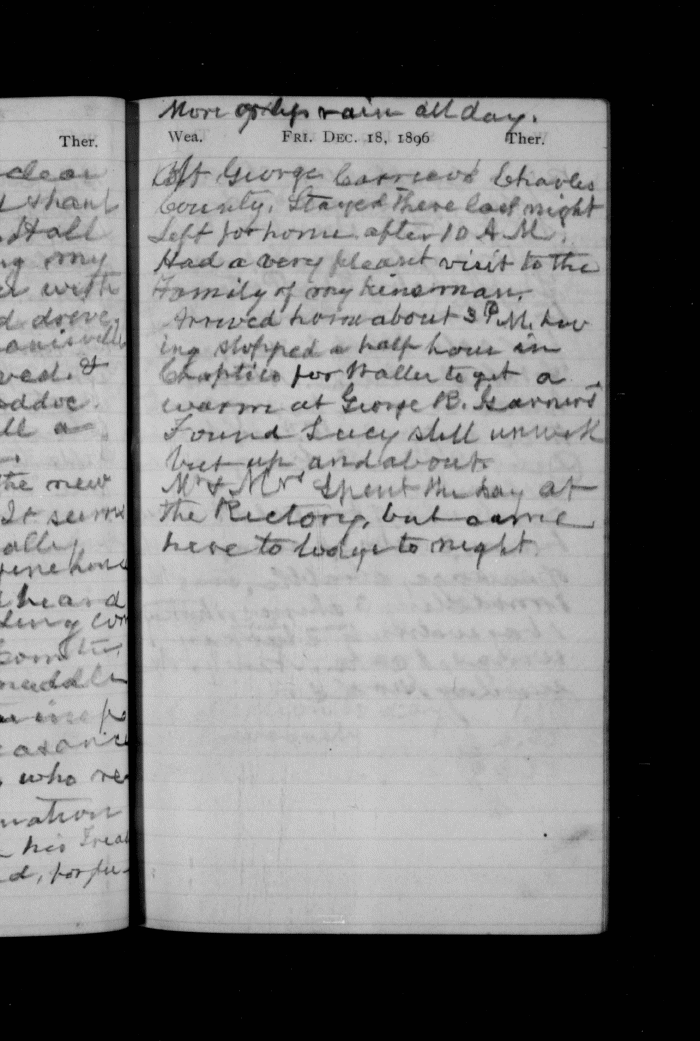 Ther.
clear
Hall
ng my
er with
d drove
ved. &
ll a
the new
It seems
ally
heard
who re
mation
his Treat
More or less rain all day.
Wea. FRI. DEC. 18, 1896 Ther.
At George Carrico's Charles
County. Stayed there last night
Left for home after 10 A.M.
Had a very pleasnt visit to the
Family of my kinsman.
Arrived home about 3 P.M. hav
ing stopped a half hour in
Chaptico for Waller to get a
warm at George B. Garner's
Found Lucy still unwell
but up and about.
Mr & Mrs Spent the day at
the Rectory, but came
here to lodge to night.